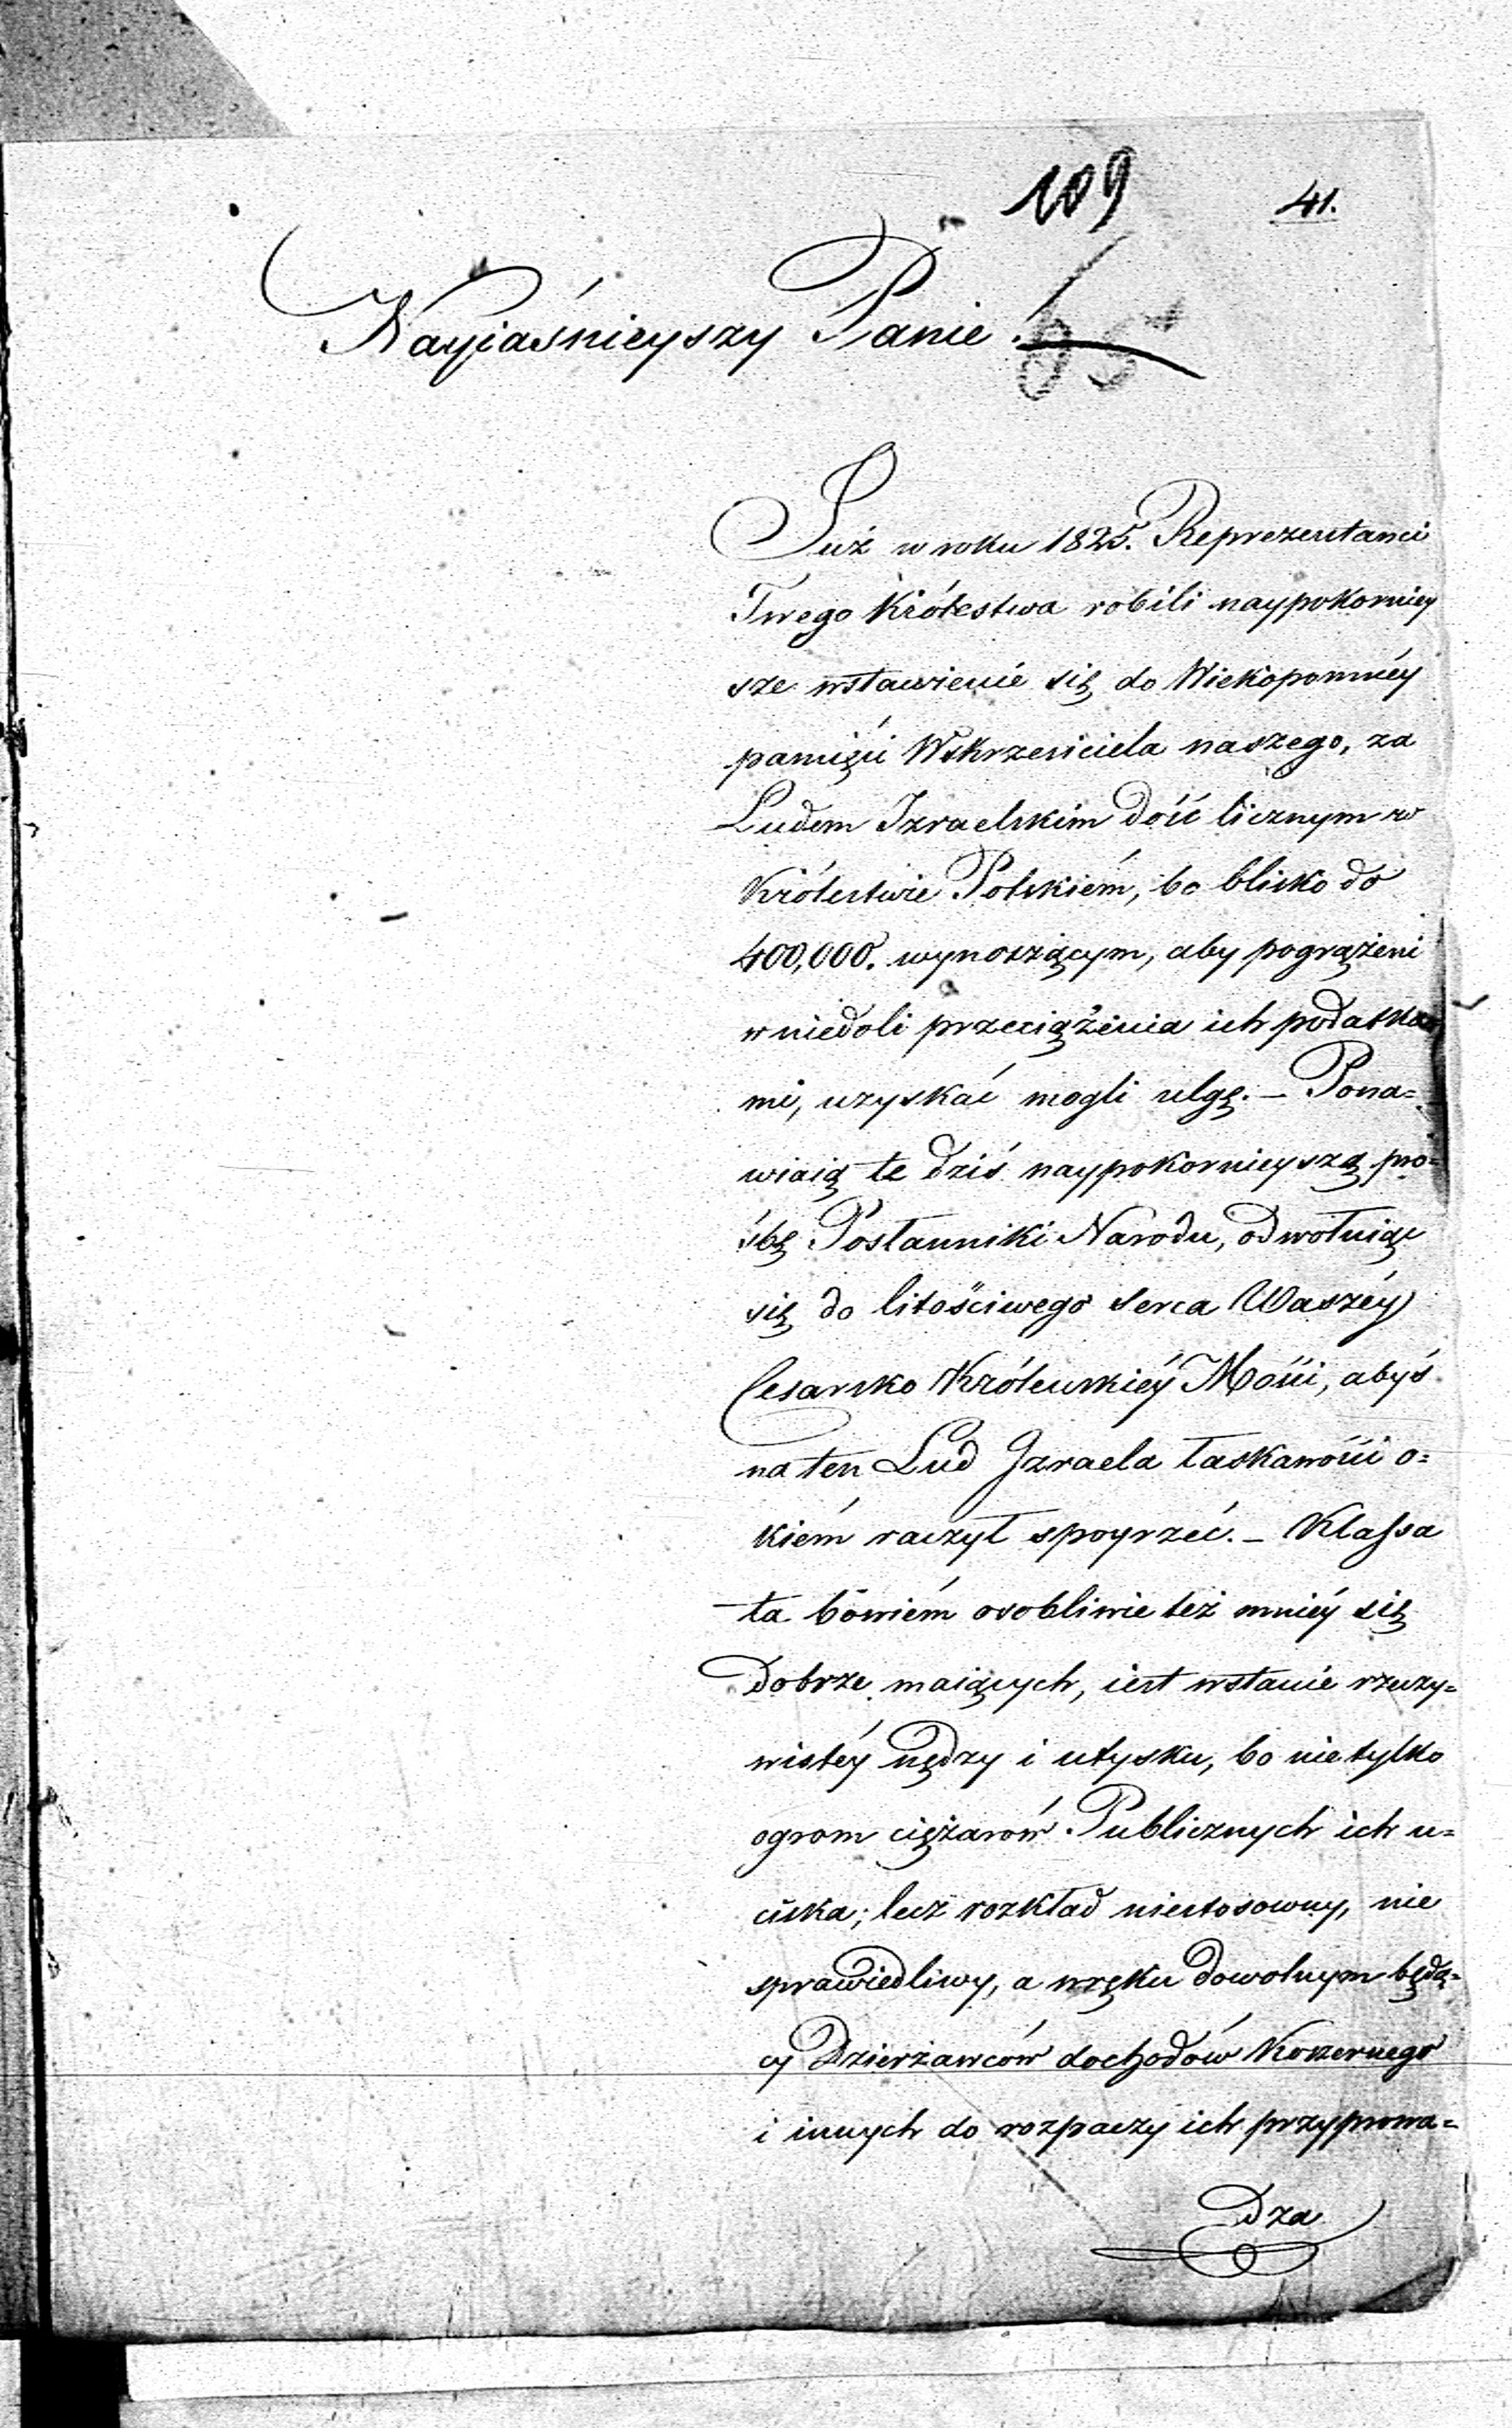 109 41.
Nayiaśnieyszy Panie!
85
Już w roku 1825. Reprezentanci
Twego Królestwa robili naypokorniey
sze wstawienie się do Wiekopomnéy
pamięci Wskrzesiciela naszego, za
Ludem Izraelskim dość licznym w
Królestwie Polskiém, bo blisko do
400,000. wynoszącym, aby pogrążeni
w niedoli przeciążenia ich podatka
mi, uzyskać mogli ulgę. – Pona=
wiaią te dziś naypokornieyszą pro=
śbę Posłanniki Narodu, odwołuiąc
się do litościwego serca Waszéy
Cesarsko Królewskiéy Mości, abyś
na ten Lud Izraela łaskawości o=
kiém raczył spoyrzéć. – Klassa
ta bowiém osobliwie też mniéy się
dobrze maiących, iest wstanie rzeczy=
wistéy nędzy i utysku, bo nietylko
ogrom ciężarów Publicznych ich u=
ciska; lecz rozkład niestosowny, nie
sprawiedliwy, a wręku dowolnym będą=
cy Dzierżawców dochodów Koszernego
i innych do rozpaczy ich przyprowa=
dza